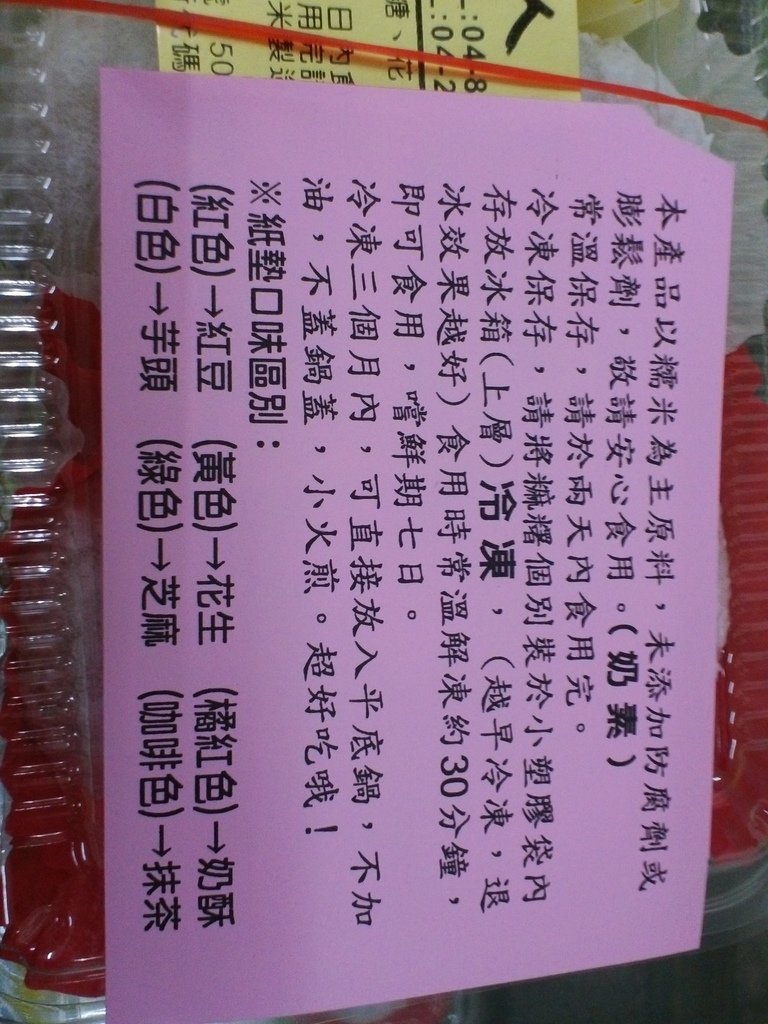 本產品以糯米為主原料，未添加防腐劑或
膨鬆劑，敬請安心食用。(奶素)
常溫保存，請於兩天內食用完。
冷凍保存，請將麻糬個別裝於小塑膠袋內
存放冰箱(上層)冷凍，（越早冷凍，退
冰效果越好）食用時常溫解凍約30分鐘，
即可食用，嚐鮮期七日。
冷凍三個月內，可直接放入平底鍋，不加
油，不蓋鍋蓋，小火煎。超好吃哦！
※紙墊口味區別：
(紅色)→紅豆 (黃色)→花生 (橘紅色)→奶酥
(白色)→芋頭 (綠色)→芝麻 (咖啡色)→抹茶
:04-8
:04-2
糖、花
日內食
用完
米製造
50